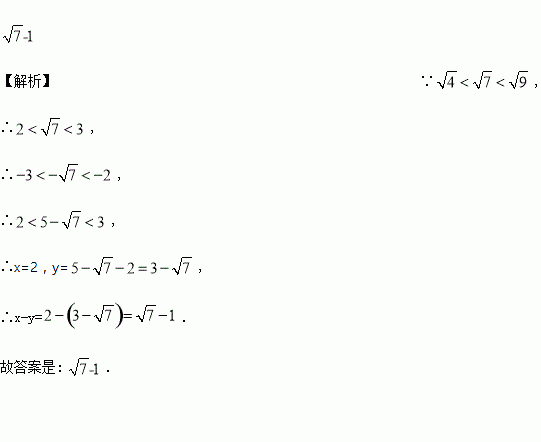 √7-1
【解析】 ∵√4＜√7＜√9，
∴2＜√7＜3，
∴−3＜−√7＜−2，
∴2＜5−√7＜3，
∴x=2，y=5−√7−2=3−√7，
∴x−y=2−(3−√7)=√7−1．
故答案是：√7-1．